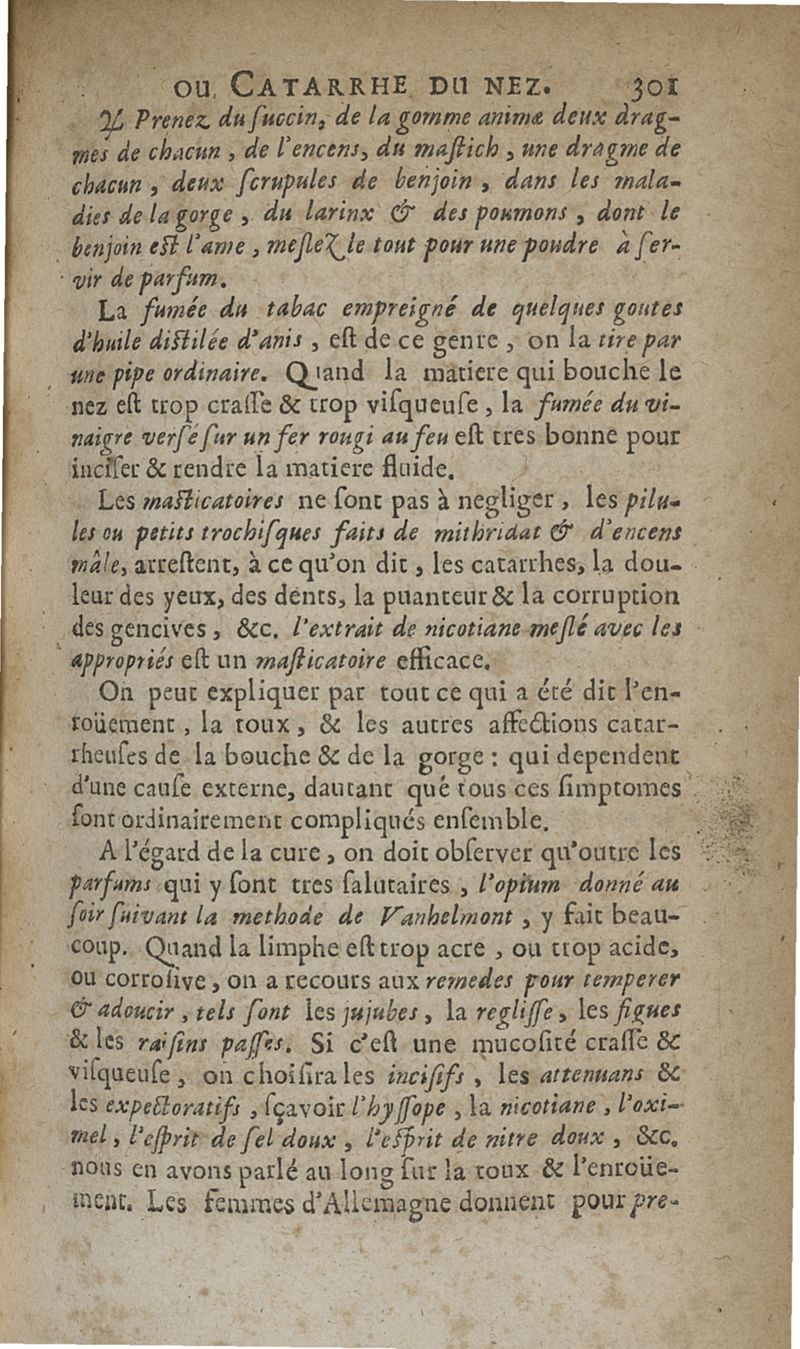 ou CATARRHE DU NEZ. 301
♃ Prenez du ſuccin, de la gomme animæ deux drag-
mes de chacun, de l'encens, du maſtich, une dragme de
chacun, deux ſcrupules de benjoin, dans les mala-
dies de la gorge, du larinx & des poumons, dont le
benjoin eſt l'ame, meſlez le tout pour une poudre à ſer-
vir de parfum.
La fumée du tabac empreigné de quelques goutes
d'huile diſtilée d'anis, eſt de ce genre, on la tire par
une pipe ordinaire. Quand la matiere qui bouche le
nez eſt trop craſſe & trop viſqueuſe, la fumée du vi-
naigre verſé ſur un fer rougi au feu eſt tres bonne pour
inciſer & rendre la matiere fluide.
Les maſticatoires ne ſont pas à negliger, les pilu-
les ou petits trochiſques faits de mithridat & d'encens
mâle, arreſtent, à ce qu'on dit, les catarrhes, la dou-
leur des yeux, des dents, la puanteur & la corruption
des gencives, &c. l'extrait de nicotiane meſlé avec les
appropriés eſt un maſticatoire efficace.
On peut expliquer par tout ce qui a été dit l'en-
roüement, la toux, & les autres affections catar-
rheuſes de la bouche & de la gorge : qui dependent
d'une cauſe externe, dautant qué tous ces ſimptomes
ſont ordinairement compliqués enſemble.
A l'égard de la cure, on doit obſerver qu'outre les
parfums qui y ſont tres ſalutaires, l'opium donné au
ſoir ſuivant la methode de Vanhelmont, y fait beau-
coup. Quand la limphe eſt trop acre, ou trop acide,
ou corroſive, on a recours aux remedes pour temperer
& adoucir, tels ſont les jujubes, la regliſſe, les figues
& les raiſins paſſes. Si c'eſt une mucoſité craſſe &
viſqueuſe, on choiſira les inciſifs, les attenuans &
les expectoratifs, ſçavoir l'hyſſope, la nicotiane, l'oxi-
mel, l'eſprit de ſel doux, l'eſprit de nitre doux, &c.
nous en avons parlé au long ſur la toux & l'enroüe-
ment. Les femmes d'Allemagne donnent pour pre-